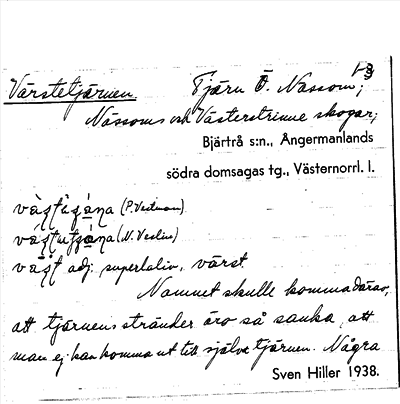 Värstetjärnen. Tjärn Ö. Nässom;
Nässoms och Västerstrinne skogar;
Bjärtrå s:n., Ångermanlands
södra domsagas tg., Västernorrl. l.
(P. Vestman)
(N. Veslin)
adj. superlativ, värst
Namnet skulle komma därav,
att tjärnens stränder äro så sanka, att
man ej kan komma ut till själve tjärnen. Några
Sven Hiller 1938.